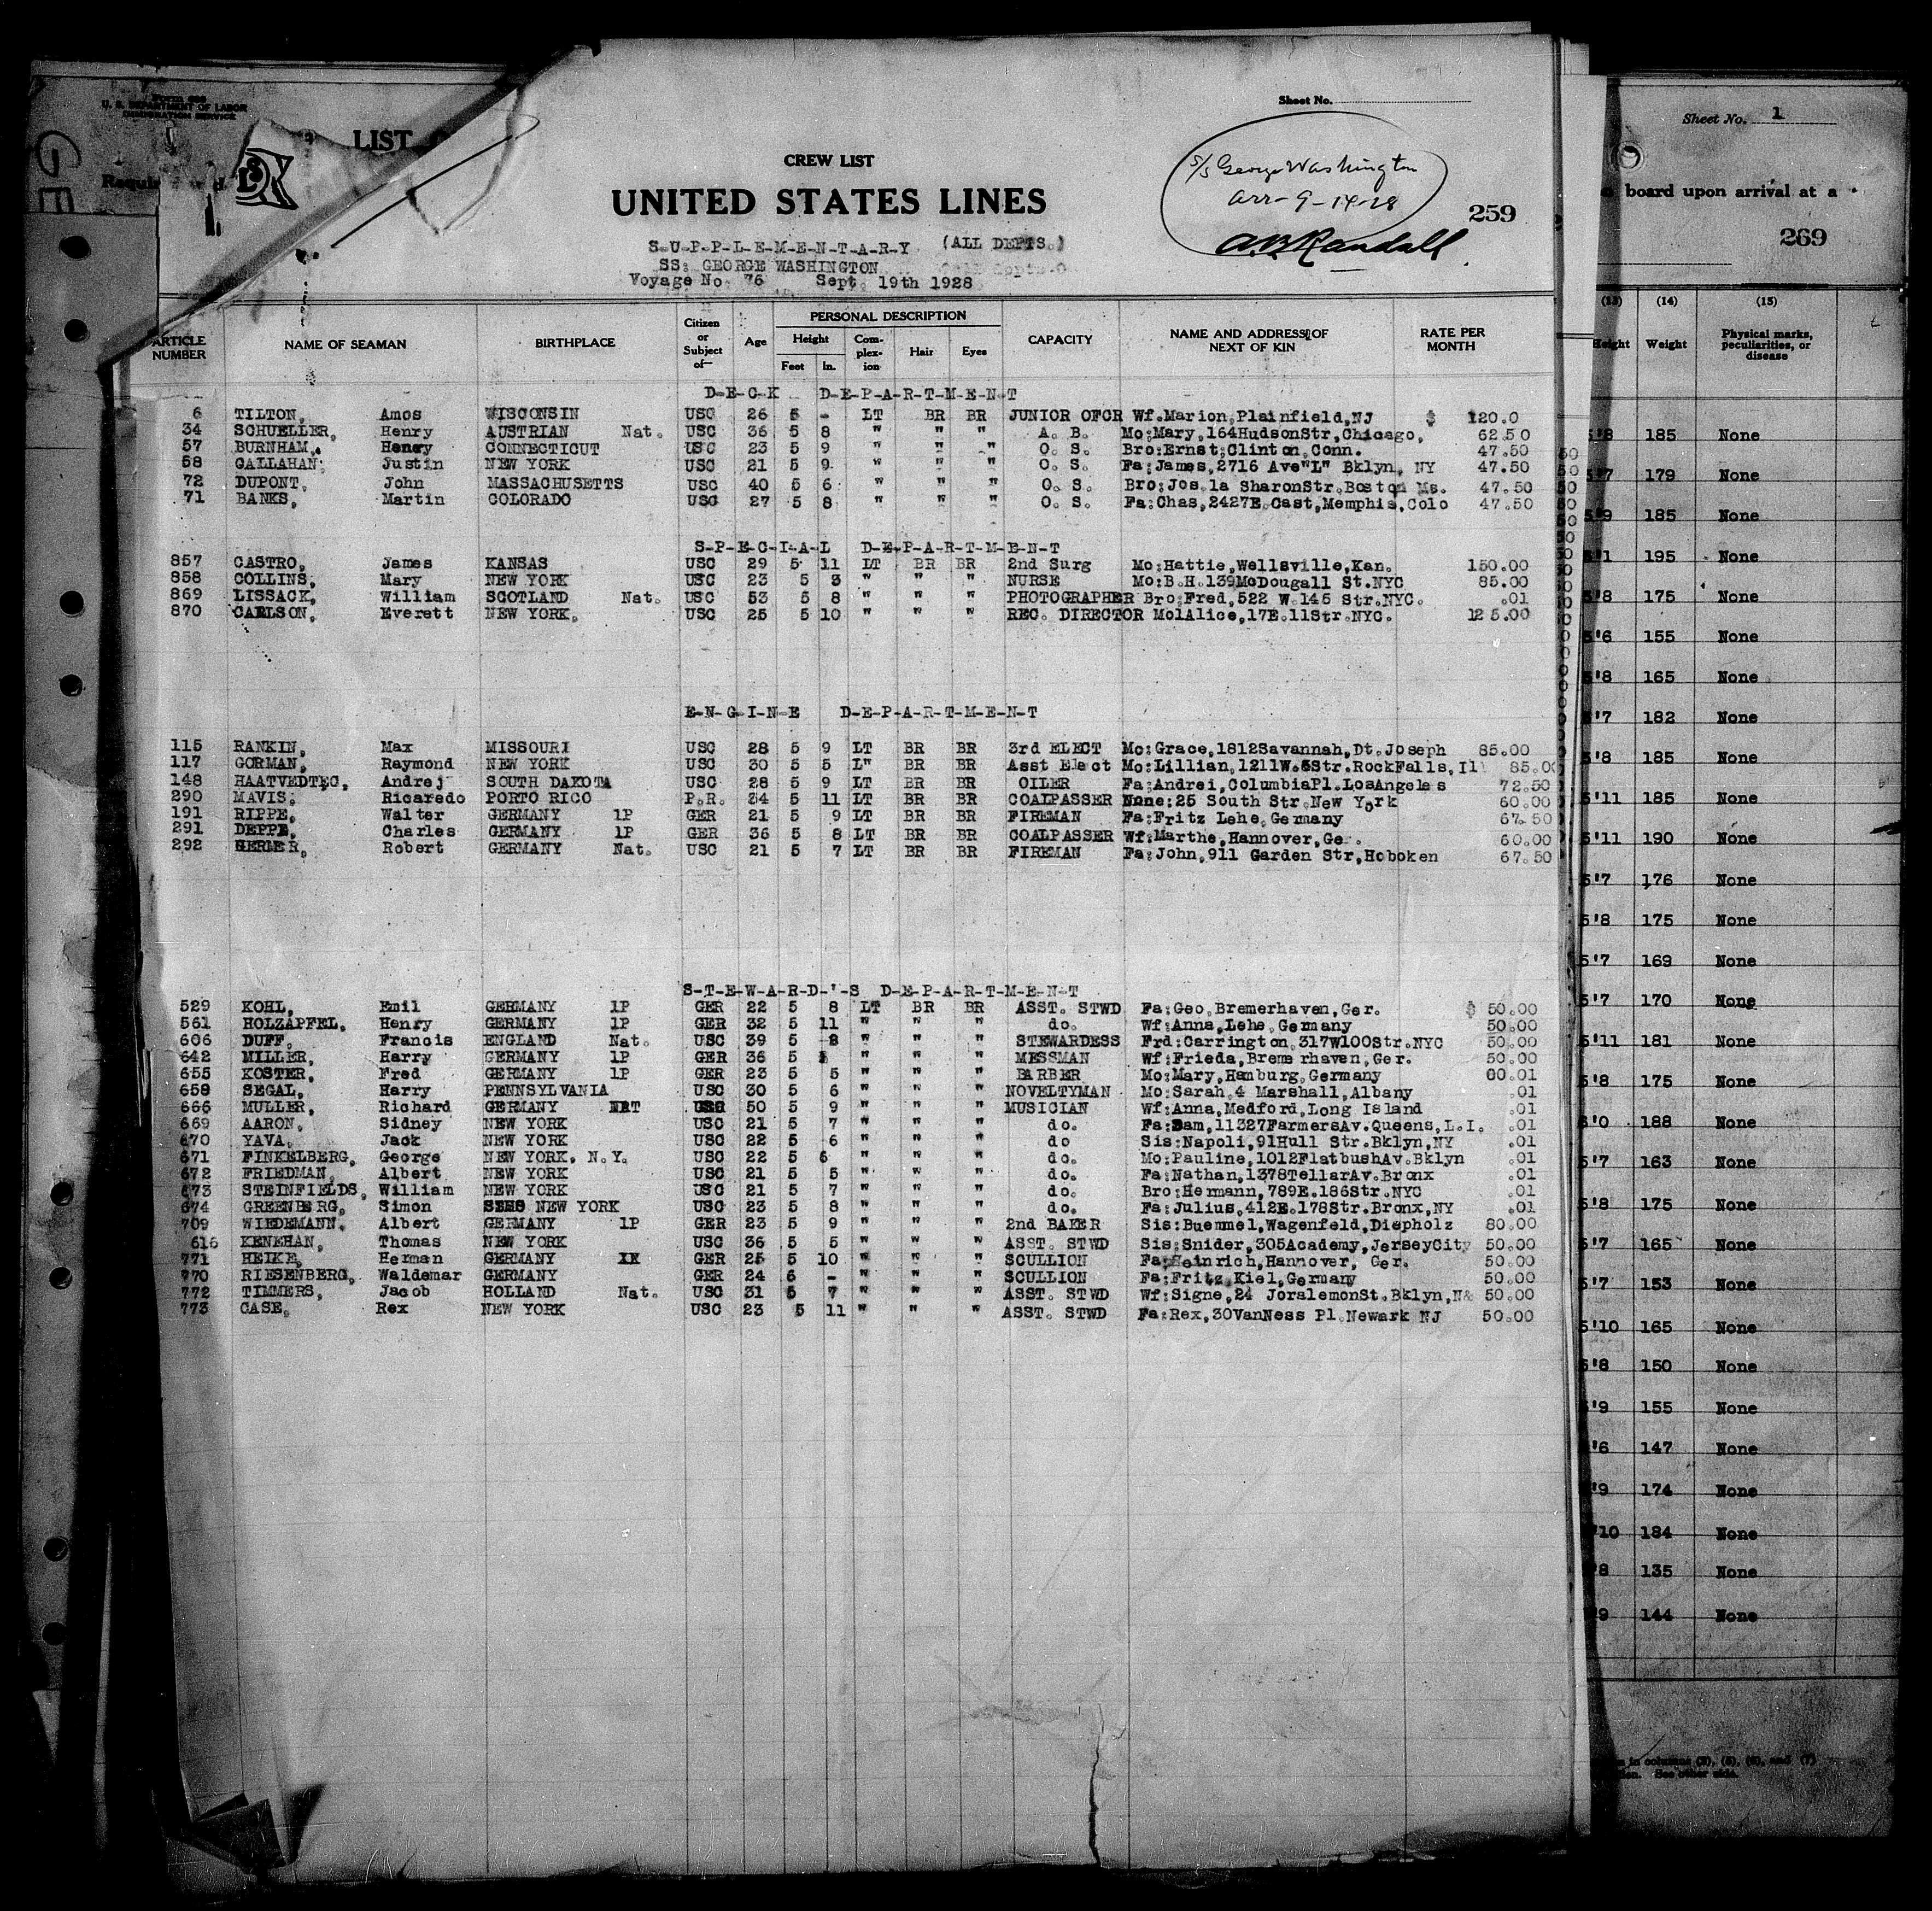 Form 689
U. S. DEPARTMENT OF LABOR
IMMIGRATION SERVICE
LIST
Sheet No.
CREW LIST
UNITED STATES LINES
S/S George Washington
arr- 9-14-28
A.B. Randall
259
S-U-P-P-L-E-M-E-N-T-A-R-Y (ALL DEPTS.)
SS: GEORGE WASHINGTON
Voyage No. 76 Sept. 19th 1928
ARTICLE NUMBER NAME OF SEAMAN BIRTHPLACE Citizen or Subject of— Age PERSONAL DESCRIPTION Height Feet In. Complexion Hair Eyes CAPACITY NAME AND ADDRESS OF NEXT OF KIN RATE PER MONTH
D-E-C-K D-E-P-A-R-T-M-E-N-T
6 TILTON, Amos WISCONSIN USC 26 5 - LT BR BR JUNIOR OFCR Wf.Marion,Plainfield,NJ $ 120.0
34 SCHUELLER, Henry AUSTRIAN Nat. USC 36 5 8 " " " A. B. Mo:Mary,164HudsonStr,Chicago, 62.50
57 BURNHAM, Henry CONNECTICUT USC 23 5 9 " " " O. S. Bro:Ernst,Clinton,Conn. 47.50
58 GALLAHAN, Justin NEW YORK USC 21 5 9 " " " O. S. Fa:James,2716 Ave"L" Bklyn, NY 47.50
72 DUPONT, John MASSACHUSETTS USC 40 5 6 " " " O. S. Bro:Jos,1a SharonStr.Boston Ms. 47.50
71 BANKS, Martin COLORADO USC 27 5 8 " " " O. S. Fa:Chas,2427E.Cast,Memphis,Colo 47.50
S-P-E-C-I-A-L D-E-P-A-R-T-M-E-N-T
857 CASTRO, James KANSAS USC 29 5 11 LT BR BR 2nd Surg Mo:Hattie,Wellsville,Kan. 150.00
858 COLLINS, Mary NEW YORK USC 23 5 3 " " " NURSE Mo:B.H.139McDougall St.NYC 85.00
869 LISSACK, William SCOTLAND Nat. USC 53 5 8 " " " PHOTOGRAPHER Bro:Fred,522 W.145 Str.NYC. .01
870 CARLSON, Everett NEW YORK, USC 25 5 10 " " " REC. DIRECTOR MolAlice,17E.11Str.NYC. 125.00
E-N-G-I-N-E D-E-P-A-R-T-M-E-N-T
115 RANKIN, Max MISSOURI USC 28 5 9 LT BR BR 3rd ELECT Mo:Grace,1812Savannah,Dt.Joseph 85.00
117 GORMAN, Raymond NEW YORK USC 30 5 5 L" BR BR Asst Elect Mo:Lillian,1211W.5Str.RockFalls,Il 85.00
148 HAATVEDTEG, Andrej SOUTH DAKOTA USC 28 5 9 LT BR BR OILER Fa:Andrei,ColumbiaPl.LosAngeles 72.50
290 MAVIS, Ricaredo PORTO RICO P.R. 34 5 11 LT BR BR COALPASSER None:25 South Str.New York 60.00
191 RIPPE, Walter GERMANY 1P GER 21 5 9 LT BR BR FIREMAN Fa:Fritz Lehe,Germany 67.50
291 DEPPE, Charles GERMANY 1P GER 36 5 8 LT BR BR COALPASSER Wf:Marthe,Hannover,Ge . 60.00
292 Robert GERMANY Nat. USC 21 5 7 LT BR BR FIREMAN Fa:John,911 Garden Str,Hoboken 67.50
S-T-E-W-A-R-D-'-S D-E-P-A-R-T-M-E-N-T
529 KOHL, Emil GERMANY 1P GER 22 5 8 LT BR BR ASST. STWD Fa:Geo.Bremerhaven,Ger. $ 50.00
561 HOLZAPFEL, Henry GERMANY 1P GER 32 5 11 " " " do. Wf:Anna,Lehe,Germany 50.00
606 DUFF, Francis ENGLAND Nat. USC 39 5 8 " " " STEWARDESS Frd:Carrington,317W100Str.NYC 50.00
642 MILLER, Harry GERMANY 1P GER 36 5 " " " MESSMAN Wf:Frieda,Bremerhaven,Ger. 50.00
655 KOSTER, Fred GERMANY 1P GER 23 5 5 " " " BARBER Mo:Mary,Hamburg,Germany 00.01
658 SEGAL, Harry PENNSYLVANIA USC 30 5 6 " " " NOVELTYMAN Mo:Sarah,4 Marshall,Albany .01
666 MULLER, Richard GERMANY NAT USC 50 5 9 " " " MUSICIAN Wf:Anna,Medford,Long Island .01
669 AARON, Sidney NEW YORK USC 21 5 7 " " " do. Fa:Sam,11327FarmersAv.Queens,L.I. .01
670 YAVA, Jack NEW YORK USC 22 5 6 " " " do Sis:Napoli,91Hull Str.Bklyn,NY .01
671 FINKELBERG, George NEW YORK, N.Y. USC 22 5 6 " " " do. Mo:Pauline,1012FlatbushAv.Bklyn .01
672 FRIEDMAN, Albert NEW YORK USC 21 5 5 " " " do. Fa:Nathan,1378TellarAv.Bronx .01
673 STEINFIELDS, William NEW YORK USC 21 5 7 " " " do. Bro:Hermann,789E.186Str.NYC .01
674 GREENBERG, Simon NEW YORK USC 23 5 8 " " " do. Fa:Julius,412E.178Str.Bronx,NY .01
709 WIEDEMANN, Albert GERMANY 1P GER 23 5 9 " " " 2nd BAKER Sis:Buemmel,Wagenfeld,Diepholz 80.00
616 KENEHAN, Thomas NEW YORK USC 36 5 5 " " " ASST. STWD Sis:Snider,305Academy,JerseyCity 50.00
771 HEIKE, Herman GERMANY GER 25 5 10 " " " SCULLION Fa:Heinrich,Hannover, Ger. 50.00
770 RIESENBERG, Waldemar GERMANY GER 24 6 - " " " SCULLION Fa:Fritz,Kiel,Germany 50.00
772 TIMMERS, Jacob HOLLAND Nat. USC 31 5 7 " " " ASST. STWD Wf:Signe,24 JoralemonSt.Bklyn,N 50.00
773 CASE, Rex NEW YORK USC 23 5 11 " " " ASST. STWD Fa:Rex,30VanNess Pl.Newark NJ 50.00
Sheet No. 1
board upon arrival at a
269
(13) (14) (15)
Height Weight Physical marks, peculiarities, or disease
5'8 185 None
5'7 179 None
5'9 185 None
5'1 195 None
5'8 175 None
5'6 155 None
5'8 165 None
5'7 182 None
5'8 185 None
5'11 185 None
5'11 190 None
5'7 176 None
5'8 175 None
5'7 169 None
5'7 170 None
5'11 181 None
5'8 175 None
6'0 188 None
5'7 163 None
5'8 175 None
5'7 165 None
5'7 153 None
5'10 165 None
5'8 150 None
5'9 155 None
5'6 147 None
'9 174 None
'10 184 None
'8 135 None
'9 144 None
in columns (2), (5), (6), and (7)
See other side.